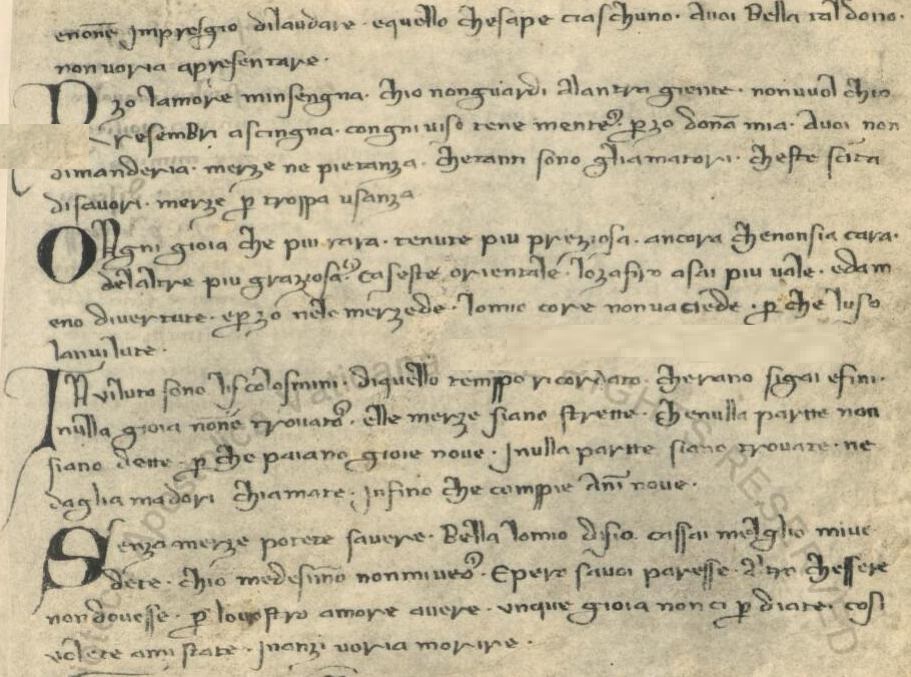 enonē impresgio dilaudare · equello chesape ciaschuno · Avoi Bella tal dono ·
non voria apresentare ·
Pzo lamore minsengna · chio nonguardi alantra giente · non vuol chio
resembri ascingna · congni viso tene mente · ꝑzo donā mia · Avoi non
dimanderia · merze ne pietanza · chetanti sono gliamatori · cheste scita
disavori · merze ꝑ troppa usanza
Ongni gioia che piu rara · tenute piu preziosa · ancora chenonsia cara ·
delaltre piu grazzosa · Caseste orientale · lozafiro asai piu vale · edam
eno divertute · eꝑzo nele merzede · lomio core nonvaciede · ꝑche luso
lanvilute ·
Inviluto sono liscolosmini · diquello temppo ricordato · cherano sigai efini ·
nulla gioia nonē trovato · elle merze siano strette · chenulla partte non
siano dette · ꝑche paiano gioie nove · Jnulla partte siano trovate · ne
dagliamadori chiamate · Jnfino che comppie Anī nove ·
Senza merze potete savere · Bella lomio disio · cassai melglio mive
dete · chio medesimo nonmiveo · Epero savoi paresse · altro chessere
nondovesse · ꝑ lovostro amore avere · unque gioia nonci ꝑdiate · cosi
volete amistate · Jnanzi voria morire ·